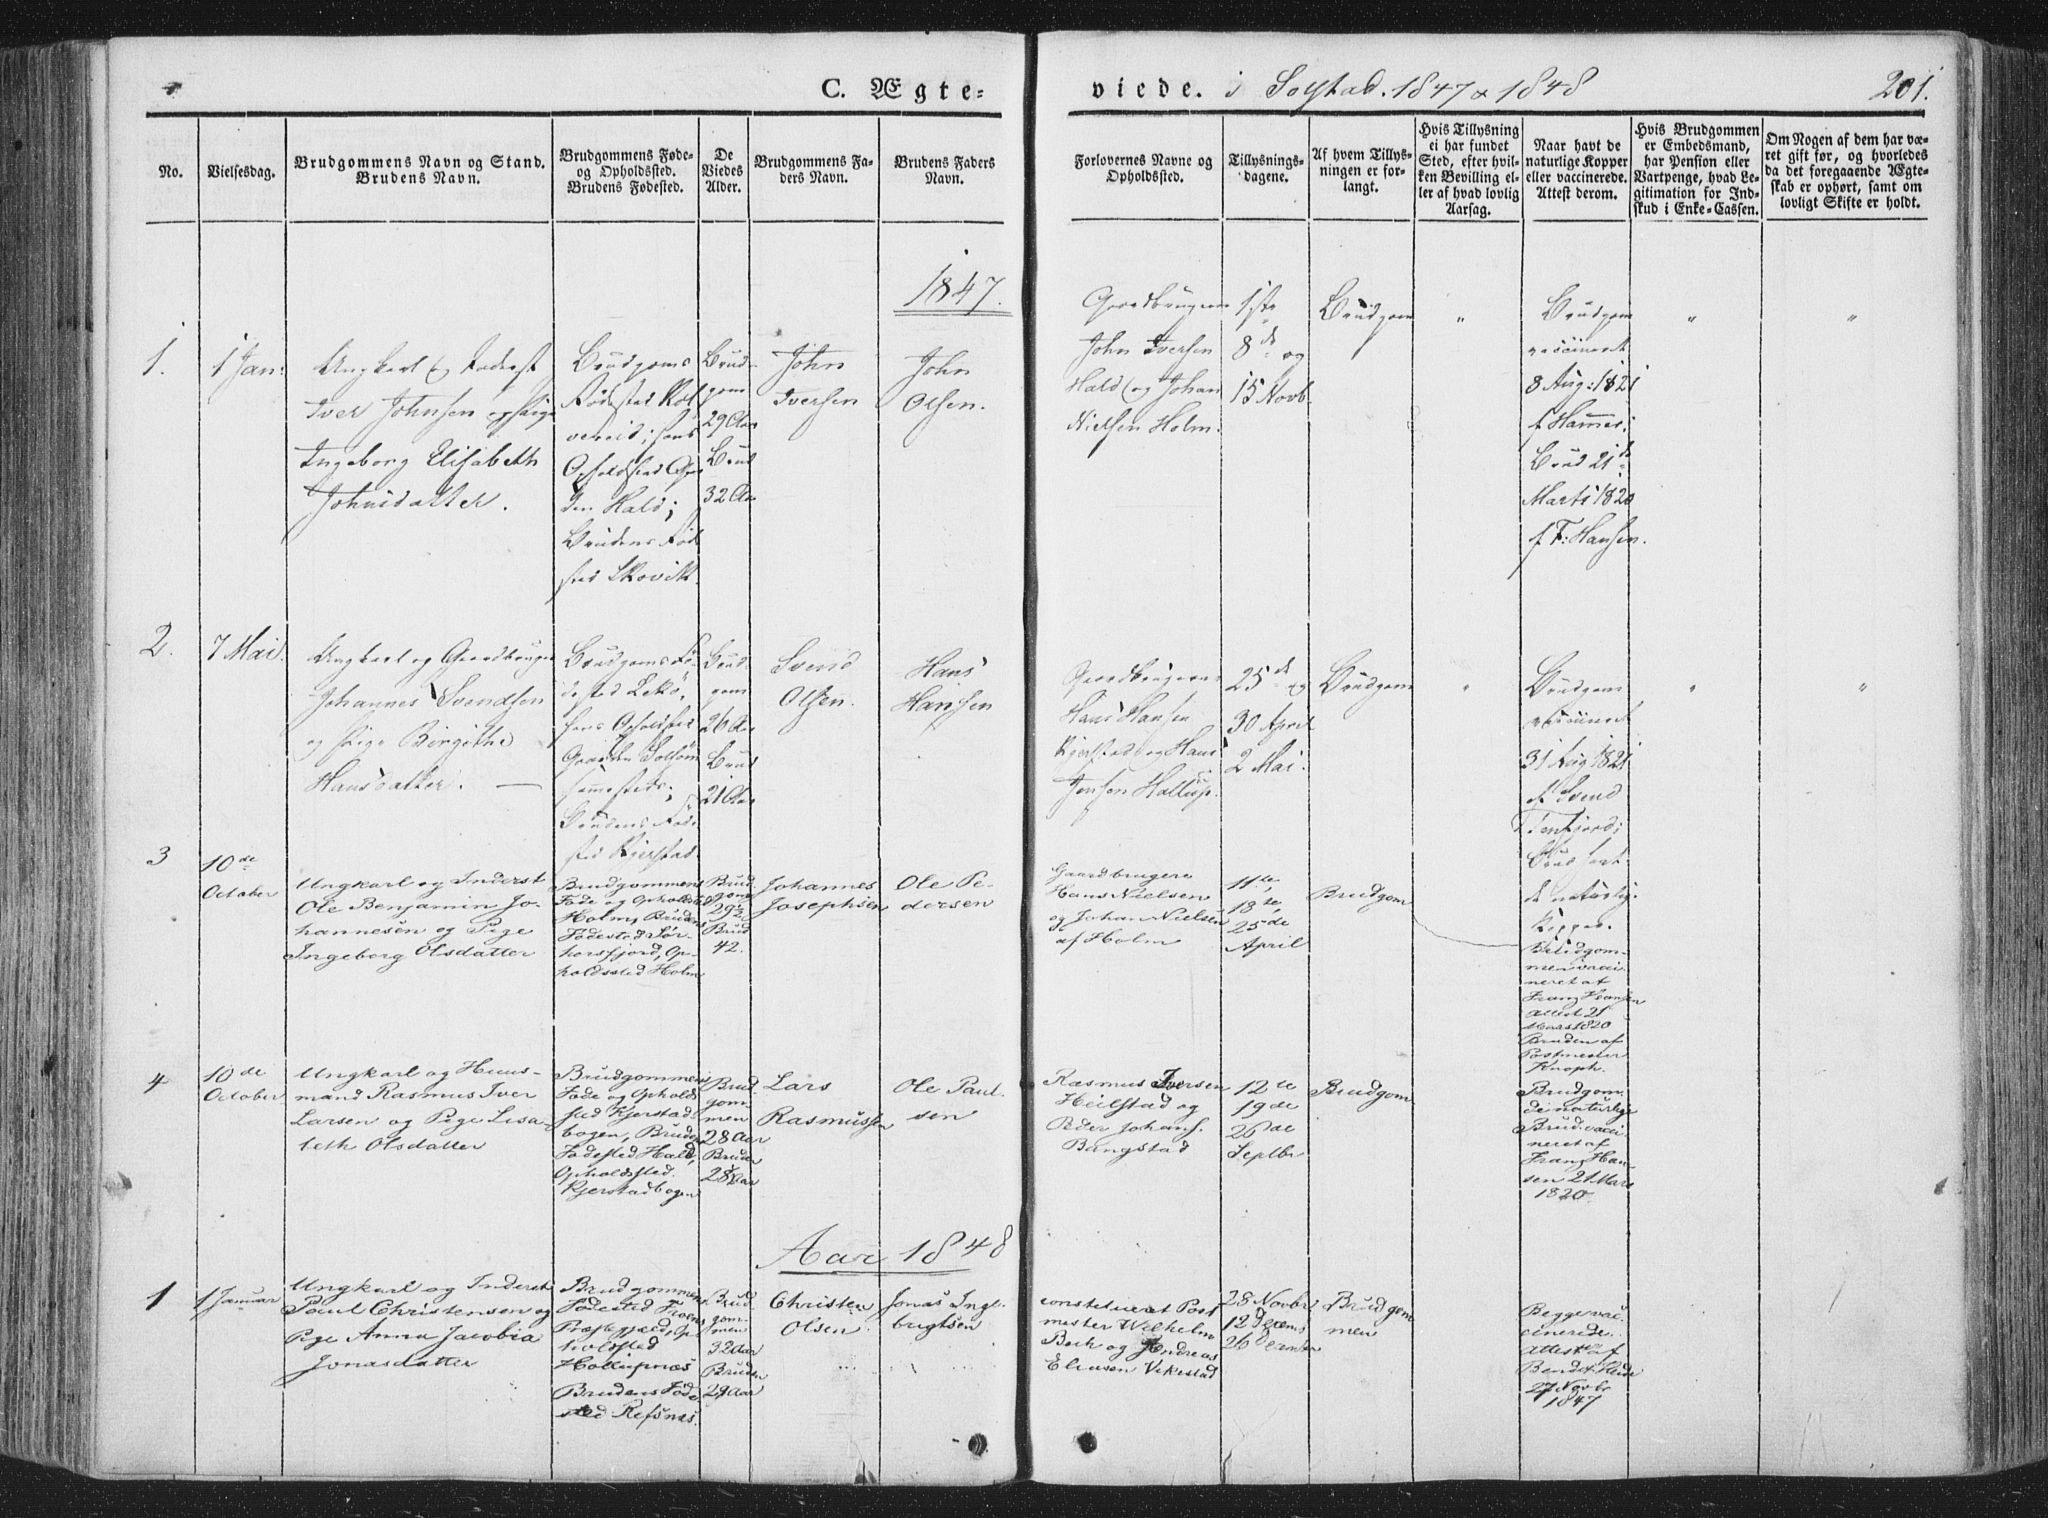 C. Ægte-
viede. i Solstad. 1847 & 1848
201.
No.
Vielsesdag.
Brudgommens Navn og Stand.
Brudens Navn.
Brudgommens Føde-
og Opholdssted.
Brudens Fødested.
De
Viedes
Alder.
Brudgommens Fa-
ders Navn.
Brudens Faders
Navn.
Forlovernes Navne og
Opholdssted.
Tillysnings-
dagene.
Af hvem Tillys-
ningen er for-
langt.
Hvis Tillysning
ei har fundet
Sted, efter hvil-
ken Bevilling el-
ler af hvad lovlig
Aarsag.
Naar havt de
naturlige Kopper
eller vaccinerede.
Attest derom.
Hvis Brudgommen
er Embedsmand,
har Pension eller
Vartpenge, hvad Le-
gitimation for Ind-
skud i Enke-Cassen.
Om Nogen af dem har væ-
ret gift før, og hvorledes
da det foregaaende Ægte-
skab er ophørt, samt om
lovligt Skifte er holdt.
1847.
1.
1 Jan:
Ungkarl og Inderst
Iver Johnsen og Pige
Ingeborg Elisabeth
Johnsdatter.
Brudgoms
Fødested Kol
vereid; hans
Opholdsted Gaar
den Hald;
Brudens Fød
sted Skovik
Brud-
gom
29 Aar
Brud
32 Aar
John
Iversen
John
Olsen.
Gaardbrugerne
John Iversen
Hald og Johan
Nielsen Holm.
1ste
8de og
15 Novb.
Brudgom
"
Brudgom
vaccineret
8 Aug: 1821
f Hammer;
Brud 21de
Marts 1820
f F: Hansen.
"
"
2.
7 Mai.
Ungkarl og Gaardbruger
Johannes Svendsen
og Pige Birgithe
Hansdatter.
Brudgoms Fø-
dested Lekø,
hans Opholdsted
Gaarden Solsøm
sammesteds;
Brudens Føde
sted Kjerstad
Brud-
gom
26 Aar
Brud
21 Aar
Svend
Olsen.
Hans
Hansen
Gaardbrugerne
Hans Hansen
Kjerstad og Hans
Jensen Hollup.
25de og
30 April
2 Mai.
Brudgom
"
Brudgom
vaccineret
31 Aug 1821
af Svend
Tenfjord;
Brud havt
de naturlige
Kopper.
"
"
3
10de
October
Ungkarl og Inderst
Ole Benjamin Jo-
hannesen og Pige
Ingeborg Olsdatter
Brudgommens
Føde og Opholdsted
Holm, Brudens
Fødested Sør-
horsfjord, Op-
holdssted Holm
Brud-
gom
29½
Brud
42.
Johannes
Josephsen
Ole Pe-
dersen
Gaardbrugere
Hans Nielsen
og Johan Nielsen
af Holm
11te,
18te,
25de
April
Brudgom
Brudgom-
men vacci-
neret af
Franz Hansen
attest 21
Mars 1820
Bruden af
Postmester
Knoph.
4
10de
October
Ungkarl og Huus-
mand Rasmus Iver
Larsen og Pige Lisa-
beth Olsdatter
Brudgommens
Føde og Ophold-
sted Kjerstad-
bogen, Brudens
Fødested Hald,
Opholdssted
Kjerstadbogen
Brud-
gom-
men
28 Aar
Bruden
28 Aar
Lars
Rasmussen
Ole Paul-
sen
Rasmus Iversen
Heilstad og
Peder Johans.
Bangstad
12te
19de
26de
Septbr
Brudgom
Brudgom-
de naturlige
Brud vacci-
neret af
Franz Han-
sen 21 Mars
1820.
Aar 1848
1
1 Januar
Ungkarl og Inderst
Paul Christensen og
Pige Anna Jacobia
Jonasdatter
Brudgommens
Fødested Foens
Præstegjeld, Op-
holdsted
Hollupnæs
Brudens Føde-
sted Refsnes.
Brud-
gom-
men
32 Aar
Bruden
29 Aar
Christen
Olsen
Jonas Inge-
brigtsen
constitueret Post-
mester Wilhelm
Bech og Andreas
Eliasen Vikestad
28 Novbr
12 Decemb
26 December
Brudgom
men
Begge vac-
cinerede.
attest af
27 Novbr
1847